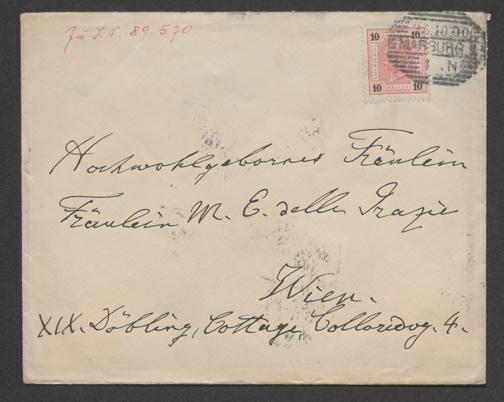 Zu I.N. 89.570
10 10
10 10
MARBURG
N
Hochwohlgebornes Fräulein
Fräulein M. E. delle Grazie
Wien.
XIX. Döbling, Cottage, Colloredog. 4.